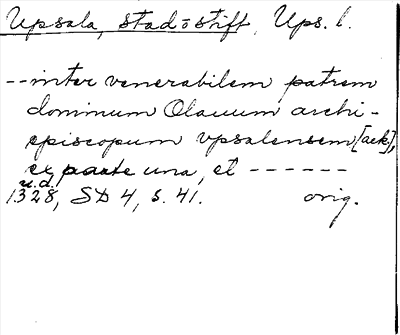 Upsala, stad o stift, Ups. l.
-- inter venerabilem patrem
dominum Olauum archi-
episcopum vpsalensem [ack],
ex parte una, et ------
u.d.
1328, SD 4, s. 41. orig.